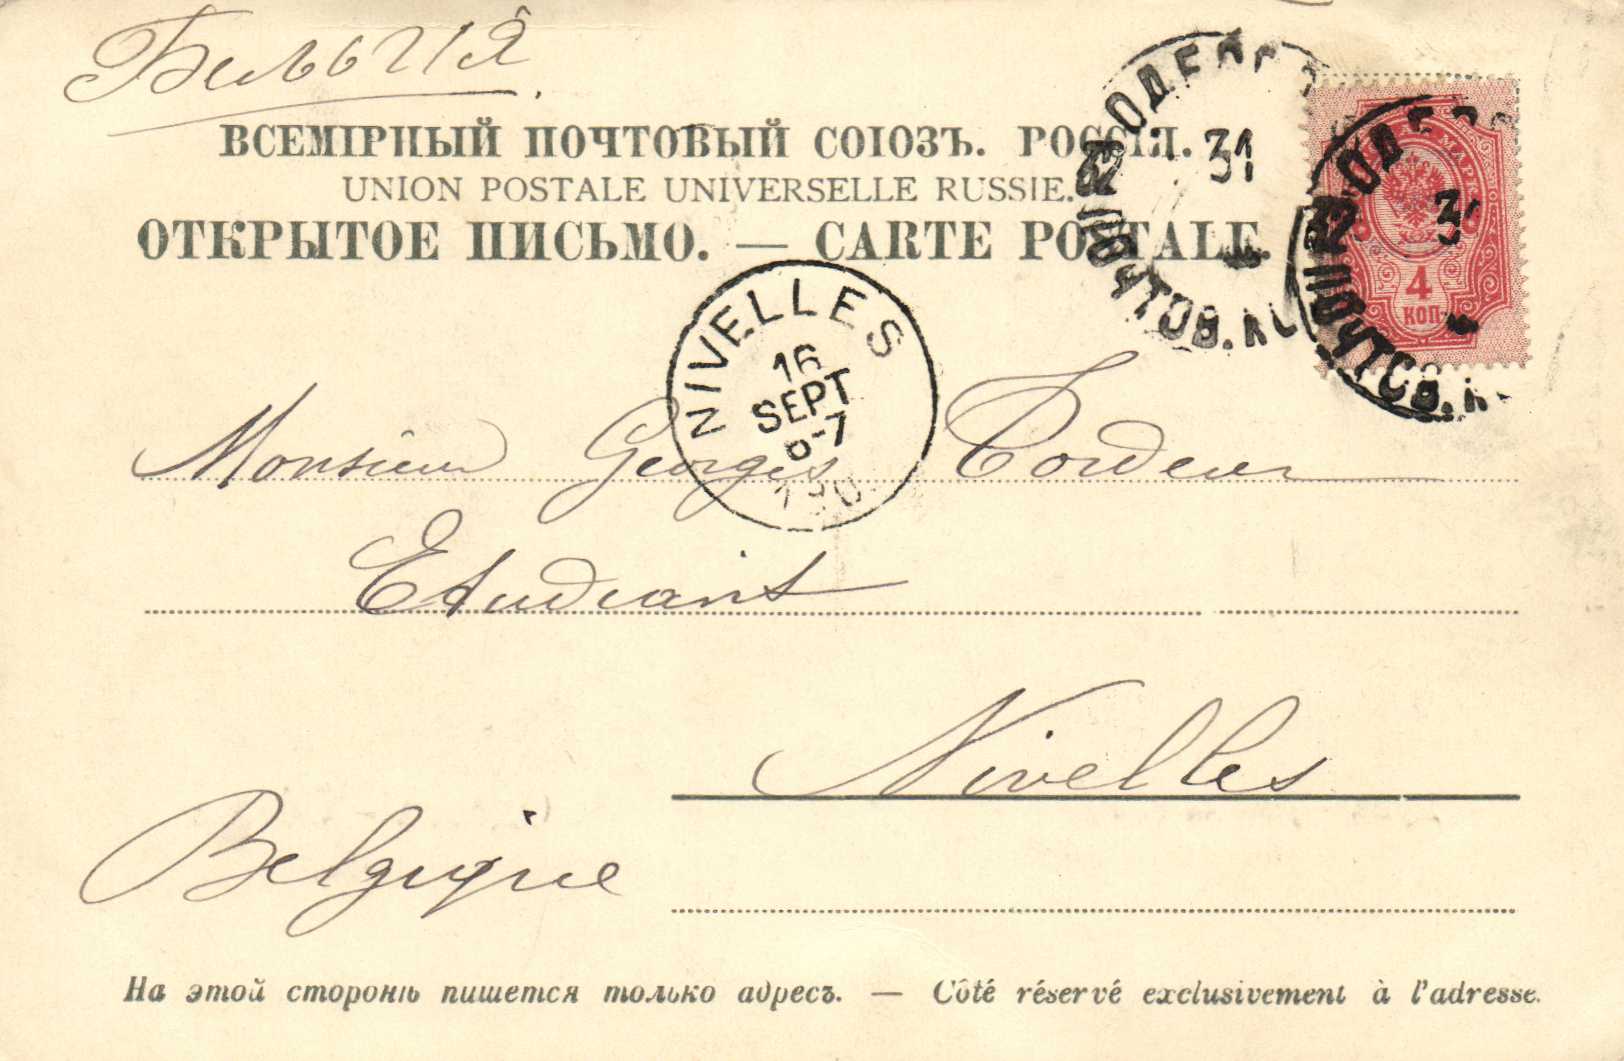 Бельгiя.
ВСЕМIРНЫЙ ПОЧТОВЫЙ СОЮЗЪ. РОССIЯ.
UNION POSTALE UNIVERSELLE RUSSIE.
ОТКРЫТОЕ ПИСЬМО. — CARTE POSTALE.
ОДЕССА
31
ПОЧТОВ. КО
МАРКА
4
КОП
ОДЕС
31
ПОЧТОВ. К
NIVELLES
16
SEPT
6-7
190
Monsieur Georges Tordeur
Etudiant
Nivelles
Belgique
На этой сторонѣ пишется только адресъ. — Côté réservé exclusivement à l'adresse.